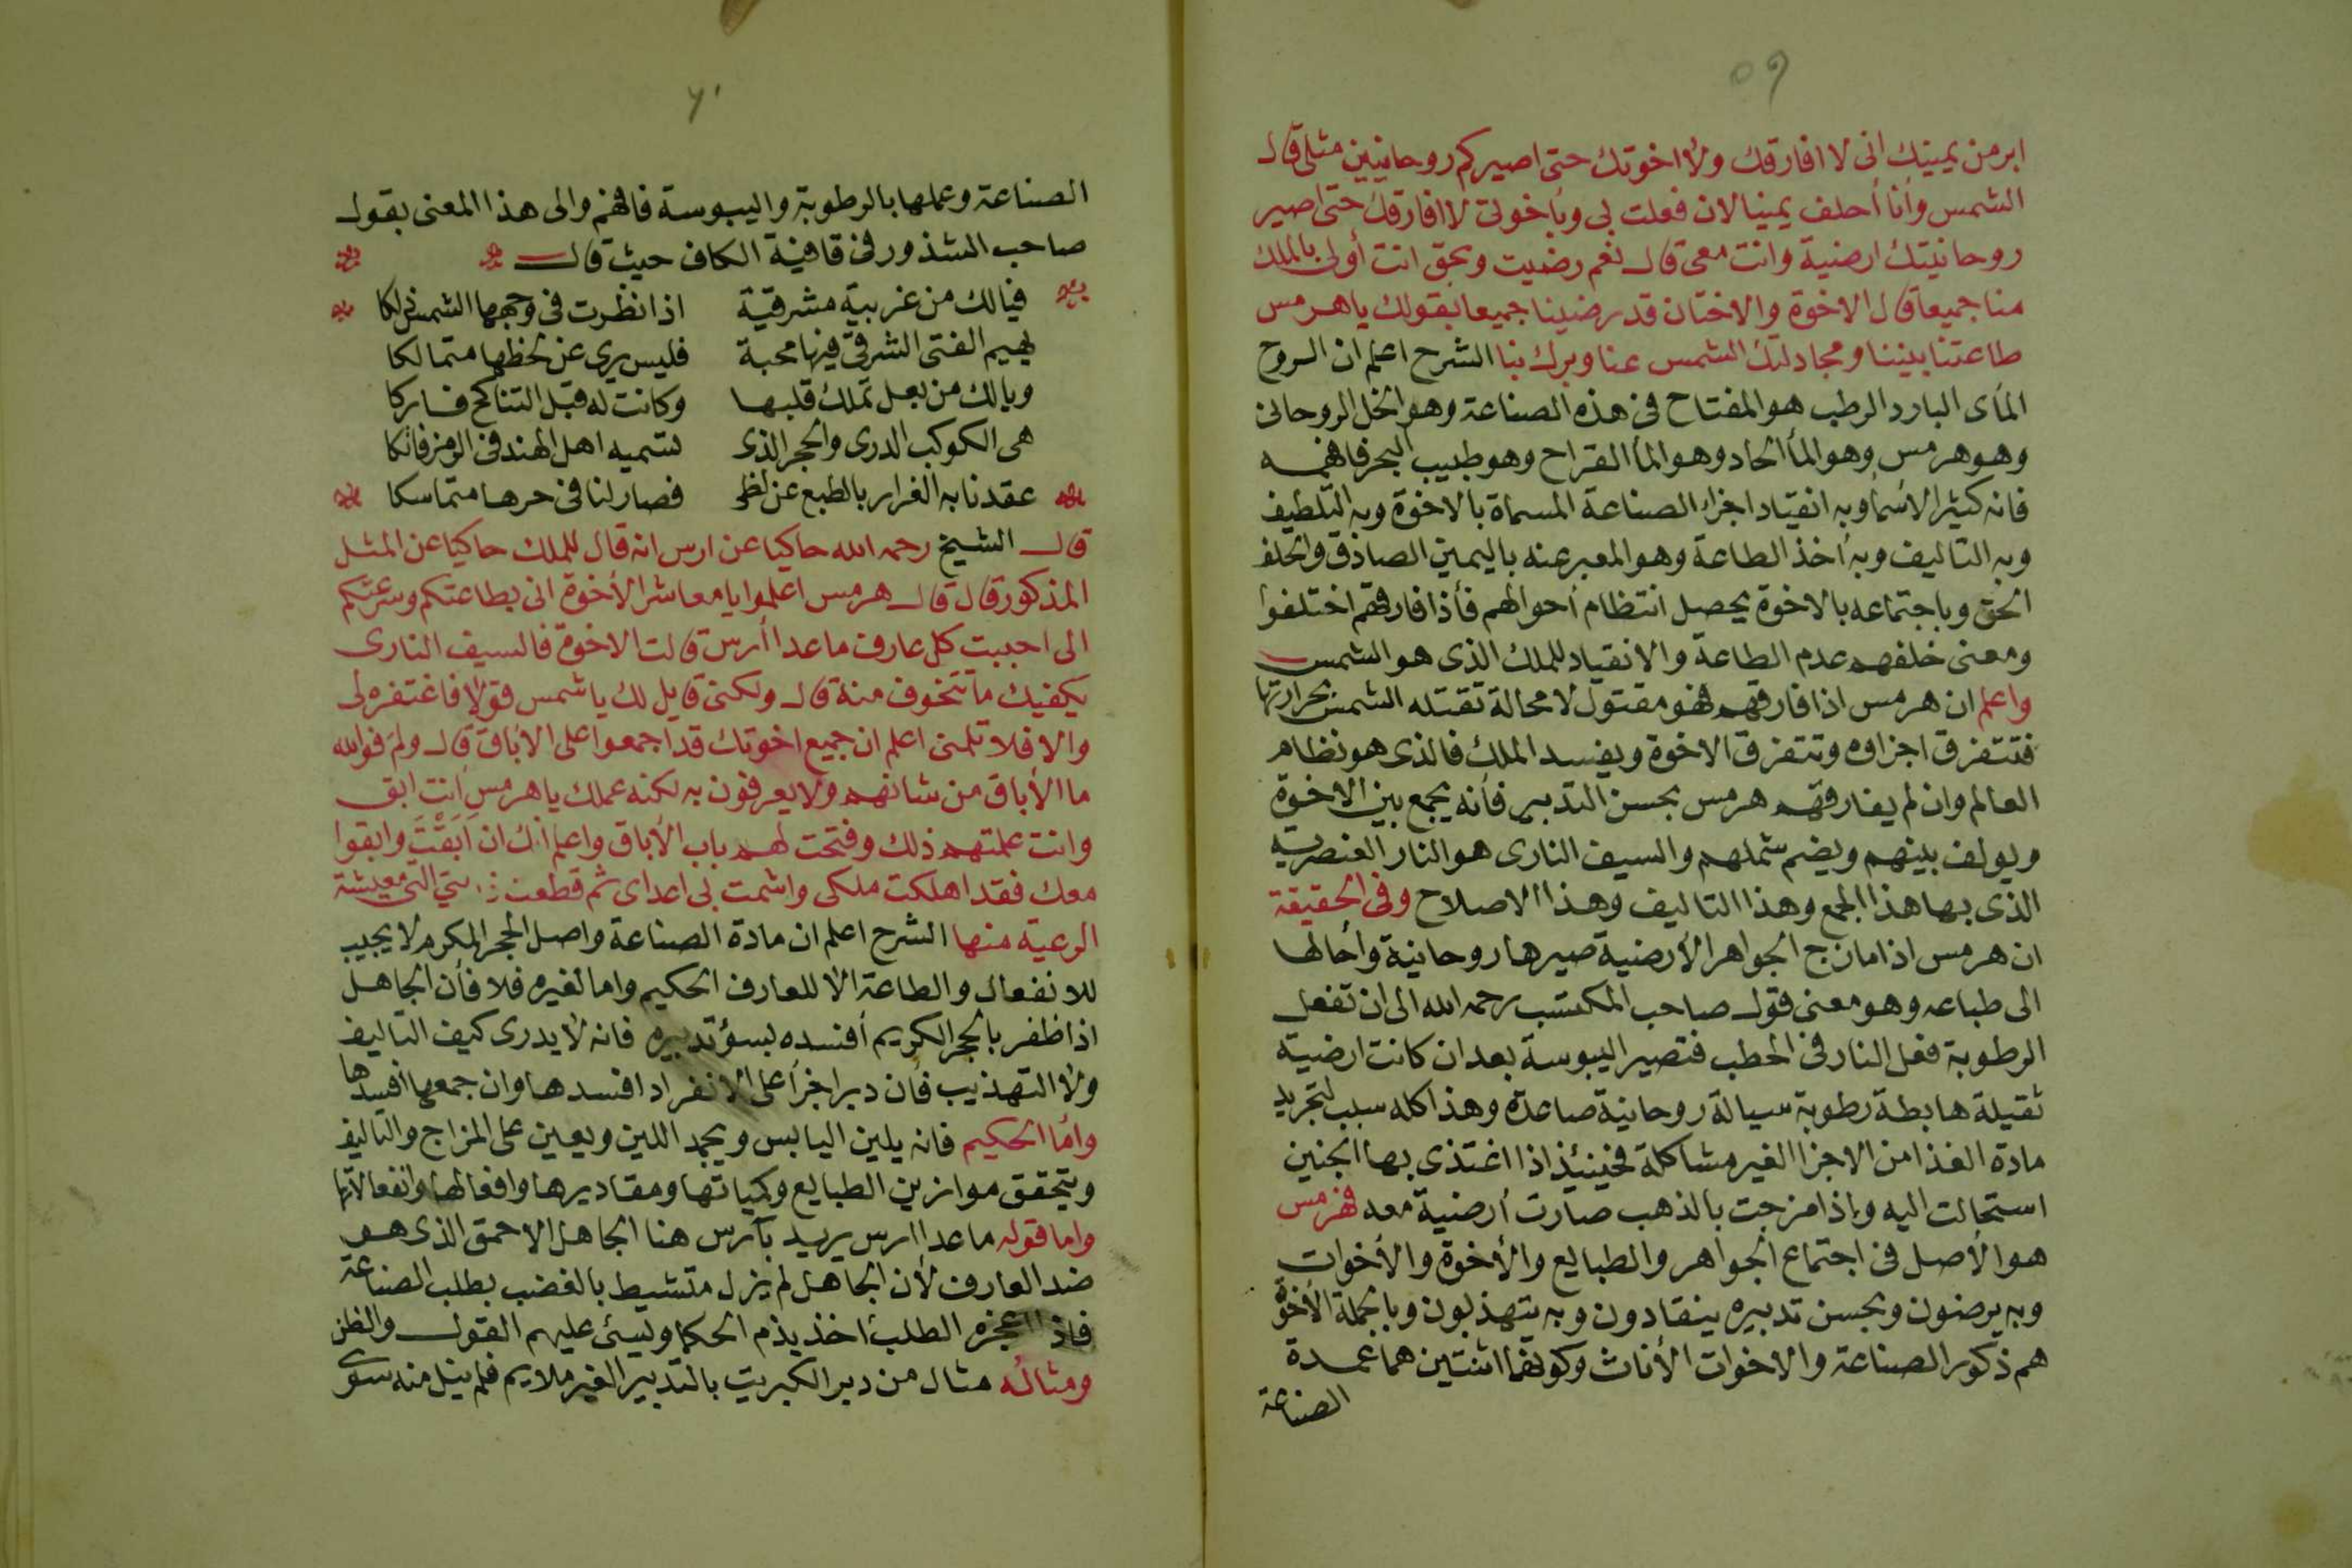 ٥٩
ابر من يمينك انى لا افارقك ولا اخوتك حتى اصيركم روحانيين مثلى قال
الشمس وأنا أحلف يمينا لان فعلت بى وباخوتى لا افارقك حتى اصير
روحانيتك ارضية وانت معى قال نعم رضيت وبحق انت أولى بالملك
منا جميعا قال الاخوة والاختان قد رضينا جميعا بقولك يا هرمس
طاعتنا بيننا ومجادلتك الشمس عنا وبرك بنا الشرح اعلم ان الروح
المأى البارد الرطب هو المفتاح فى هذه الصناعة وهو الخل الروحانى
وهو هرمس وهو المأ الحاد وهو المأ القراح وهو طبيب البحر فافهمه
فانه كثير الاسمأ وبه انقياد اجزاء الصناعة المسماة بالاخوة وبه التلطيف
وبه التاليف وبه أخذ الطاعة وهو المعبر عنه باليمين الصادق والحلف
الحق وباجتماعه بالاخوة يحصل انتظام أحوالهم فأذا فارقهم اختلفوا
ومعنى خلفهم عدم الطاعة والانقياد للملك الذى هو الشمس
واعلم ان هرمس اذا فارقهم فهو مقتول لا محالة تقتله الشمس بحرارتها
فتتفرق اجزاوه وتتفرق الاخوة ويفسد الملك فالذى هو نظام
العالم وان لم يفارقهم هرمس بحسن التدبير فأنه يجمع بين الاخوة
ويولف بينهم ويضم شملهم والسيف النارى هو النار العنصرية
الذى بها هذا الجمع وهذا التاليف وهذا الاصلاح وفى الحقيقة
ان هرمس اذا مازج الجواهر الأرضية صيرها روحانية وأحالها
الى طباعه وهو معنى قول صاحب المكتسب رحمه الله الى ان تفعل
الرطوبة فعل النار فى الحطب فتصير اليبوسة بعد ان كانت ارضية
ثقيلة هابطة رطوبة سيالة روحانية صاعدة وهذا كله سبب لتجريد
مادة الغذا من الاجزا الغير مشاكلة فحينئذ اذا اغتذى بها الجنين
استحالت اليه واذا مزجت بالذهب صارت أرضية معه فهرمس
هو الأصل فى اجتماع الجواهر والطبايع والأخوة والأخوات
وبه يرضون وبحسن تدبيره ينقادون وبه يتهذبون وبالجملة الأخوة
هم ذكور الصناعة والاخوات الأناث وكونهما اثنتين هما عمدة
الصناعة
٦٠
الصناعة وعملها بالرطوبة واليبوسة فافهم والى هذا المعنى بقول
صاحب الشذور فى قافية الكاف حيث قال
فيالك من غربية مشرقية اذا نظرت فى وجهها الشمس ذلكا
يهيم الفتى الشرقى فيها محبة فليس يرى عن لحظها متمالكا
ويالك من بعل تملك قلبها وكانت له قبل التناكح فاركا
هى الكوكب الدرى والحجر الذى تسميه اهل الهند فى الرمز فاتكا
عقدنا به الفرار بالطبع عن لظى فصار لنا فى حرها متماسكا
قال الشيخ رحمه الله حاكيا عن ارس انه قال للملك حاكيا عن المثل
المذكور قال قال هرمس اعلموا يا معاشر الأخوة انى بطاعتكم وسرعتكم
الى اجببت كل عارف ما عدا أرس قالت الاخوة فالسيف النارى
يكفيك ما تتخوف منة قال ولكنى قايل لك يا شمس قولا فاغتفره لى
والا فلا تلمنى اعلم ان جميع اخوتك قد اجمعوا على الأباق قال ولم فوالله
ما الأباق من شانهم ولا يعرفون به لكنه عملك يا هرمس أنت ابق
وانت علمتهم ذلك وفتحت لهم باب الأباق واعلم انك ان أبقت وابقوا
معك فقد اهلكت ملكى واشمت بى اعداى ثم قطعت التى معيشة
الرعية منها الشرح اعلم ان مادة الصناعة واصل الحجر المكرم لا يجيب
للانفعال والطاعة الا للعارف الحكيم واما لغيره فلا فأن الجاهل
اذا ظفر بالحجر الكريم أفسده بسؤ تدبيره فانه لا يدرى كيف التاليف
ولا التهذيب فأن دبر اجزأ على الانفراد افسدها وان جمعها افسدها
وأما الحكيم فانه يلين اليابس ويجمد اللين ويعين على المزاج والتاليف
ويتحقق موازين الطبايع وكمياتها ومقاديرها وافعالها وانفعالاتها
واما قوله ما عدا ارس يريد بآرس هنا الجاهل الاحمق الذى هو
ضد العارف لأن الجاهل لم يزل متشيط بالغضب بطلب الصناعة
فاذا اعجزه الطلب اخذ يذم الحكما ويسئ عليهم القول والظن
ومثاله مثال من دبر الكبريت بالتدبير الغير ملايم فلم ينل منه سوى